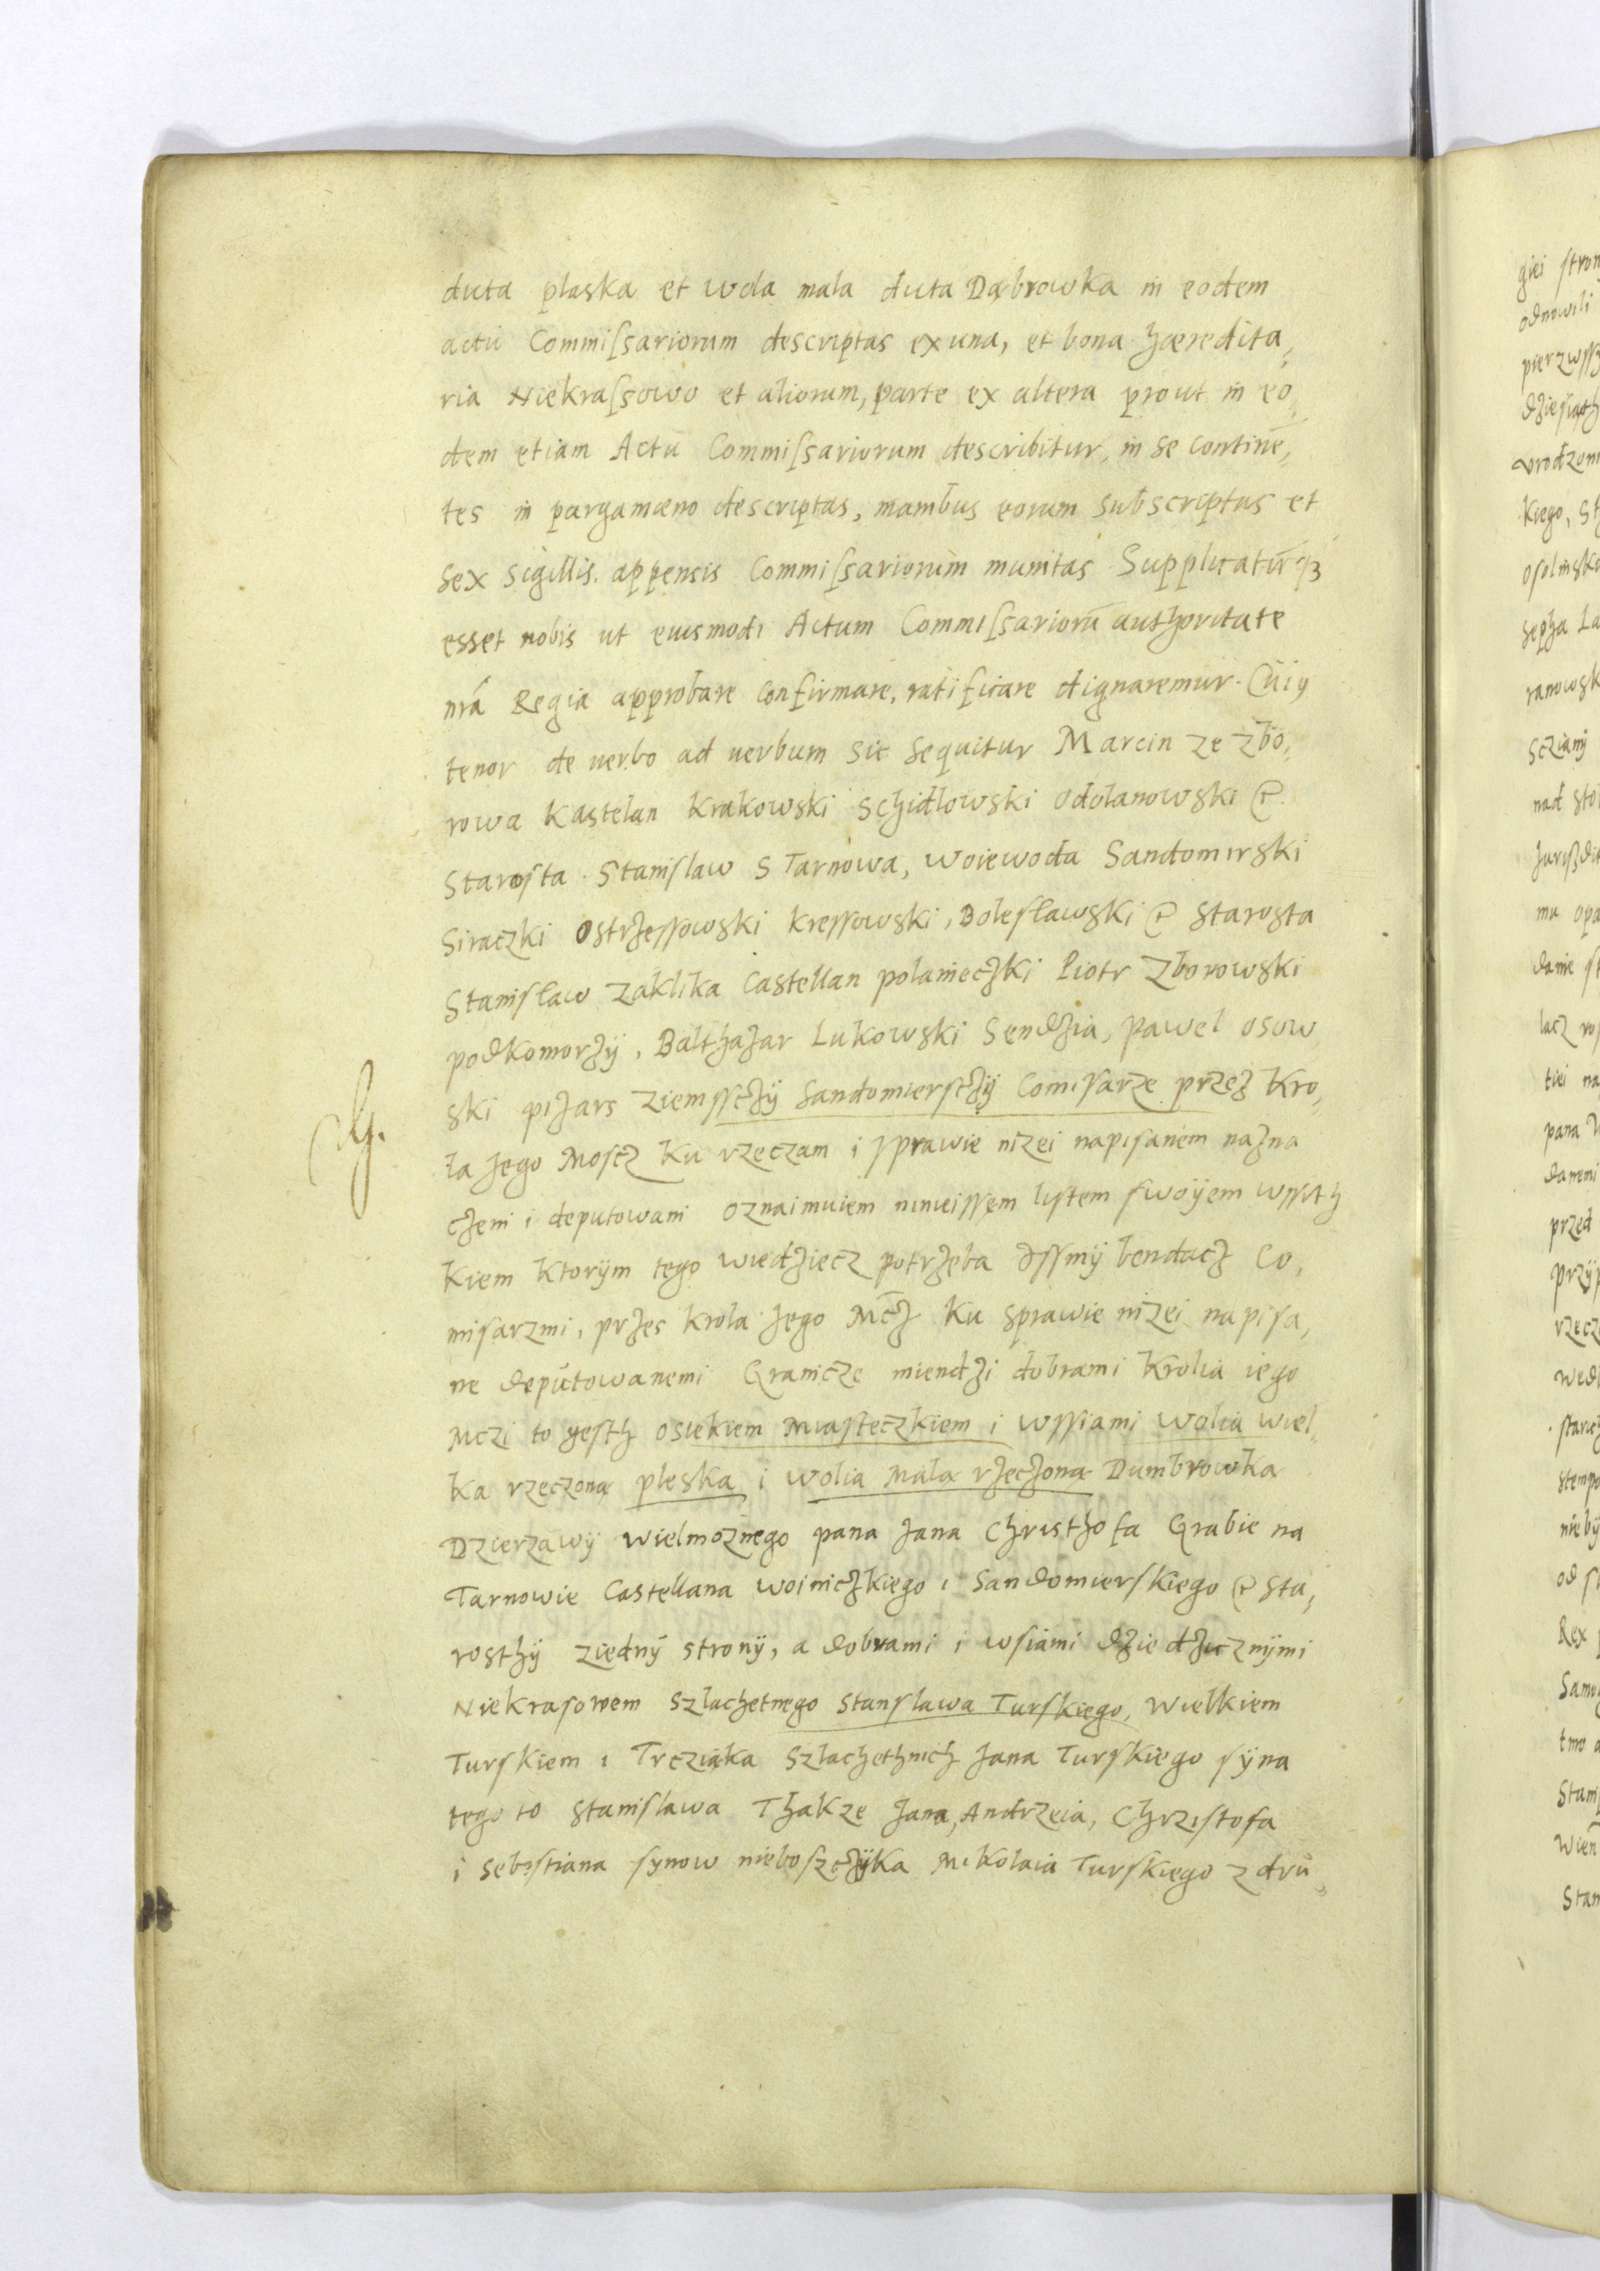 dicta plaska et wola mala dicta Dąbrowka in eodem
actu Commissariorum descriptas ex una, et bona hæredita,
ria Niekrassowo et aliorum, parte ex altera prout in eo,
dem etiam Actu Commissariorum describitur, in se contine͂,
tes in pargamæno descriptas, manibus eorum subscriptas et
sex sigillis appensis Commissariorum munitas Supplicatu͂ qȝ
esset nobis ut eiusmodi Actum Commissarioru͂ authoritate
nr͂a Regia approbare confirmare, ratificare dignaremur. Cui9
tenor de uerbo ad uerbum sic sequitur Marcin ze Zbo,
rowa Kastelan Krakowski Schidlowski Odolanowski &
Starosta. Stanislaw s Tarnowa, woiewoda Sandomirski
Siraczki Ostrzessowski kressowski, Bolesławski & Starosta
Stanisław Zaklika Castellan polanieczki Piotr Zborowski
podkomorzÿ, Balthazar Lukowski Sendzia, pawel osow
ski pizars ziemssczÿ Sandomiersczÿ Comisarze przez Kro,
la Jego Moscz Ku rzeczam i sprawie nizei napisanem nazna
czeni i deputowani oznaimuiem ninieissęm listem swoÿem wssith
kiem ktorÿm tego wiedziecz potrzeba Jssmÿ bendacz Co,
misarzmi, przes krola Jego Mcz Ku sprawie nizei napisa,
ne deputowanemi Granicze miendzi dobrami Krolia iego
Mczi to yesth osiekiem Miasteczkiem i wssiami wolia wiel,
ka rzeczona pleska i wolia Mala rzeczona Dumbrowka
Dzierzawÿ wielmoznego pana Jana Christhofa Grabie na
Tarnowie Castellana woiniczkiego i Sandomierskiego & Sta,
rosthÿ ziednÿ stronÿ, a dobrami i wsiami dziedzicznÿmi
Niekrasowem Szlachetnego Stanisława Turskiego, wielkiem
Turskiem i Trcziąka Szlachethnich Jana Turskiego sÿna
tego to Stanislawa Thakze Jana, Andrzeia, Chrzistofa
i Sebestiana synow nieboszczÿka Mikolaia Turskiego z dru,